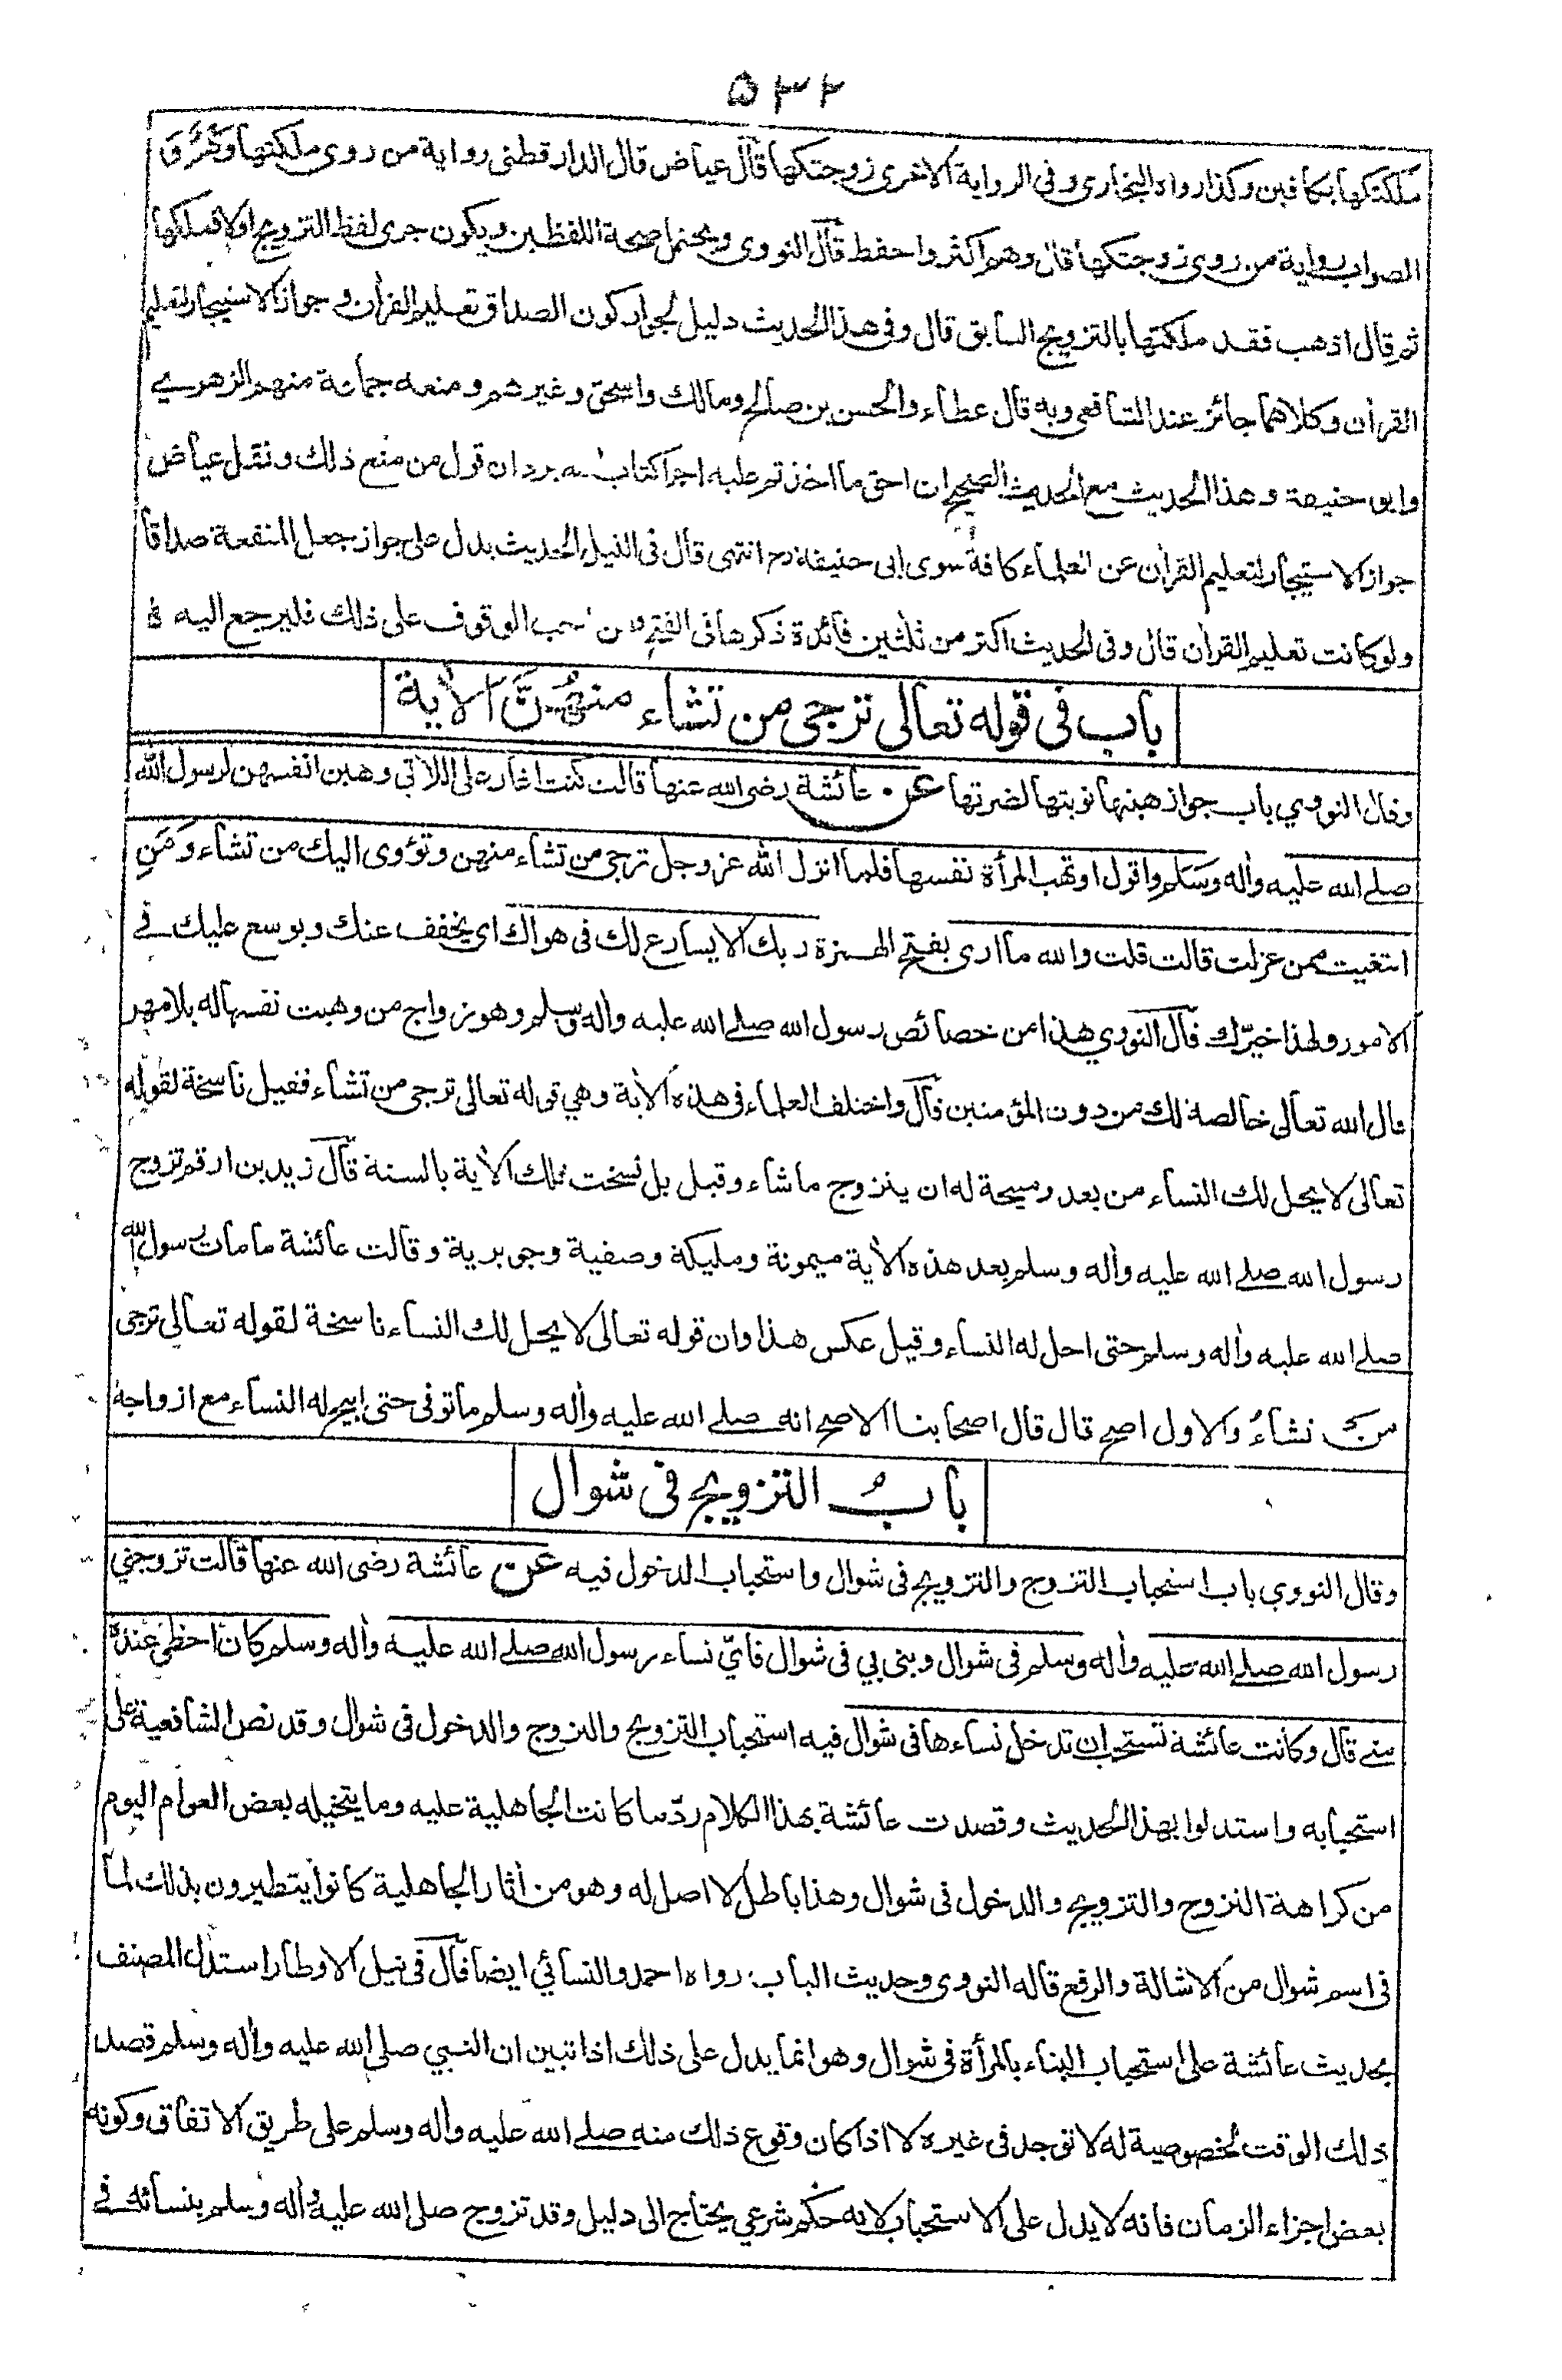 ٥٣٢
ملكتكها بكافين وكذا رواه البخاري وفي الرواية الاخرى زوجتكها قال عياض قال الدارقطني رواية من روى ملكتها وهم و
الصواب رواية من روى زوجتكها قال وهم اكثر واحفظ قال النووي ويحتمل صحة اللفظين ويكون جرى لفظ التزويج اولا فملكها
ثم قال اذهب فقد ملكتها بالتزويج السابق قال وفي هذا الحديث دليل لجواز كون الصداق تعليم القرأن وجواز الاستيجار لتعليم
القرأن وكلاهما جائز عند الشافعي وبه قال عطاء والحسن بن صالح ومالك واسحق وغيرهم ومنعه جماعة منهم الزهري
وابو حنيفة وهذا الحديث مع الحديث الصحيح ان احق ما اخذتم عليه اجرا كتاب الله يردان قول من منع ذلك ونقل عياض
جواز الاستيجار لتعليم القرأن عن العلماء كافة سوى ابي حنيفة رح انتهى قال في النيل الحديث يدل على جواز جعل المنفعة صداقا
ولو كانت تعليم القرأن قال وفي الحديث اكثر من ثلثين فائدة ذكرها في الفتح ومن احب الوقوف على ذلك فليرجع اليه
باب في قوله تعالى ترجي من تشاء منهن الأية
وقال النووي باب جواز هبتها نوبتها لضرتها عن عائشة رضي الله عنها قالت كنت اغار على اللاتي وهبن انفسهن لرسول الله
صلے الله عليه وأله وسلم واقول اوتهب المرأة نفسها فلما انزل الله عز وجل ترجي من تشاء منهن وتؤوى اليك من تشاء ومن
ابتغيت ممن عزلت قالت قلت والله ما ارى بفتح الهمزة ربك الا يسارع لك في هواك اى يخفف عنك ويوسع عليك في
الامور ولهذا خيرك قال النووي هذا من خصائص رسول الله صلے الله عليه وأله وسلم وهو زواج من وهبت نفسها له بلا مهر
قال الله تعالى خالصة لك من دون المؤمنين قال واختلف العلماء في هذه الأية وهي قوله تعالى ترجي من تشاء فقيل ناسخة لقوله
تعالى لا يحل لك النساء من بعد ومبيحة له ان يتزوج ما شاء وقيل بل نسخت تلك الأية بالسنة قال زيد بن ارقم تزوج
رسول الله صلے الله عليه وأله وسلم بعد هذه الأية ميمونة ومليكة وصفية وجويرية وقالت عائشة ما مات رسول الله
صلے الله عليه وأله وسلم حتى احل له النساء وقيل عكس هذا وان قوله تعالى لا يحل لك النساء ناسخة لقوله تعالى ترجي
من تشاء والاول اصح قال قال اصحابنا الاصح انه صلے الله عليه وأله وسلم ما توفى حتى ابيح له النساء مع ازواجه
باب التزويج في شوال
وقال النووي باب استحباب التزوج والتزويج في شوال واستحباب الدخول فيه عن عائشة رضي الله عنها قالت تزوجني
رسول الله صلے الله عليه وأله وسلم في شوال وبنى بي في شوال فاي نساء رسول الله صلے الله عليه وأله وسلم كان احظى عنده
مني قال وكانت عائشة تستحب ان تدخل نساءها في شوال فيه استحباب التزويج والتزوج والدخول في شوال وقد نص الشافعية على
استحبابه واستدلوا بهذا الحديث وقصدت عائشة بهذا الكلام رد ما كانت الجاهلية عليه وما يتخيله بعض العوام اليوم
من كراهة التزوج والتزويج والدخول في شوال وهذا باطل لا اصل له وهو من أثار الجاهلية كانوا يتطيرون بذلك لما
في اسم شوال من الاشالة والرفع قاله النووي وحديث الباب رواه احمد والنسائي ايضا قال في نيل الاوطار استدل المصنف
بحديث عائشة على استحباب البناء بالمرأة في شوال وهو انما يدل على ذلك اذا تبين ان النبي صلى الله عليه وأله وسلم قصد
ذلك الوقت لخصوصية له لا توجد في غيره لا اذا كان وقوع ذلك منه صلے الله عليه وأله وسلم على طريق الاتفاق وكونه
بعض اجزاء الزمان فانه لا يدل على الاستحباب لانه حكم شرعي يحتاج الى دليل وقد تزوج صلى الله عليه وأله وسلم بنسائه في